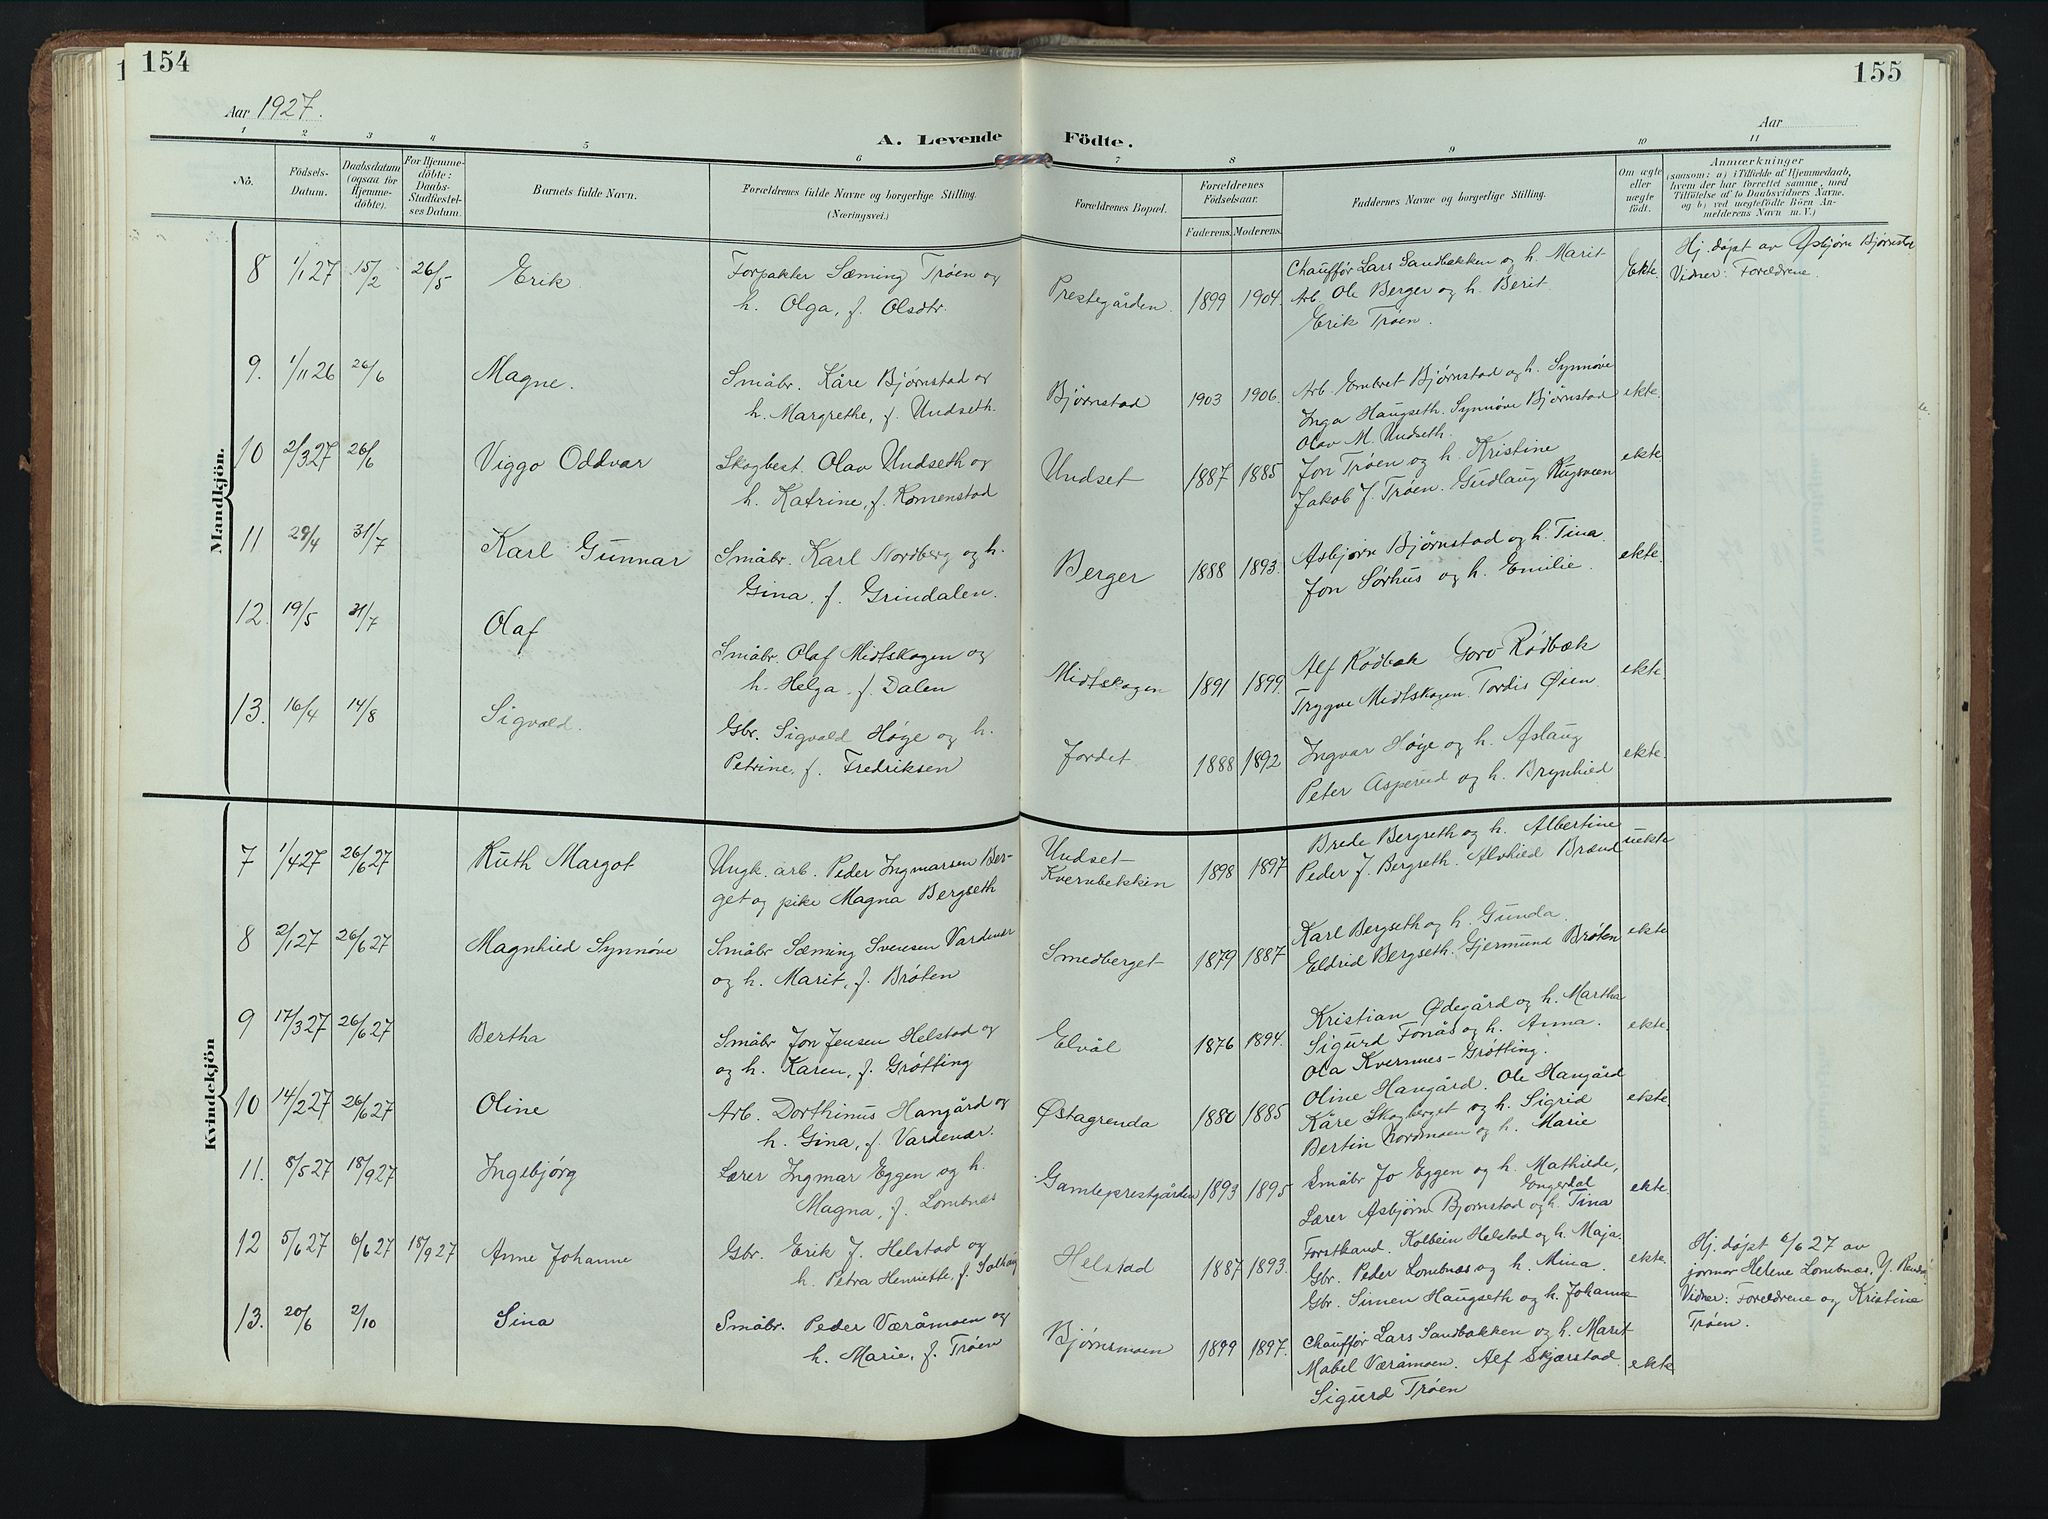 154
155
Aar 1927.
Aar
A. Levende Födte.
1 2 3 4 5 6 7 8 9 10 11
No.
Födsels-Datum.
Daabsdatum (ogsaa for Hjemme-döbte).
For Hjemme-döbte: Daabs-Stadfæstel-ses Datum.
Barnets fulde Navn.
Forældrenes fulde Navne og borgerlige Stilling.
(Næringsvei.)
Forældrenes Bopæl.
Forældrenes Födselsaar.
Faderens. Moderens.
Faddernes Navne og borgerlige Stilling.
Om ægte eller uægte födt.
Anmærkninger
(saasom: a) i Tilfælde af Hjemmedaab,
hvem der har forrettet samme, med
Tilföielse af to Daabsvidners Navne.
og b) ved uægtefödte Börn An-
melderens Navn m. V.)
Mandkjön.
8 1/1 27 15/2 26/5 Erik. Forpakter Sæming Trøen og
h. Olga, f. Olsdtr. Prestegården 1899 1904
Chauffør Lars Sandbakken og h. Marit
Arb. Ole Berger og h. Berit.
Erik Trøen.
Ekte.
Hj. døpt av Asbjørn
Vidner: Foreldrene.
9. 1/11 26 26/6 Magne. Småbr. Kåre Bjørnstad og
h. Margrethe, f. Undseth. Bjørnstad 1903 1906.
Arb. Embret Bjørnstad og h. Synnøve
Inga Haugseth. Synnøve Bjørnstad
Olav M. Undseth.
ekte.
10 2/3 27 26/6 Viggo Oddvar Skogbest. Olav Undseth og
h. Katrine, f. Komenstad Undset 1887 1885
Jon Trøen og h. Kristine
Jakob J. Trøen. Gudlaug Rugsveen
ekte
11 29/4 31/7 Karl Gunnar Småbr. Karl Nordberg og h.
Gina, f. Grindalen. Berger 1888 1893.
Asbjørn Bjørnstad og h. Tina.
Jon Sørhus og h. Emilie.
ekte.
12. 19/5 31/7 Olaf
Småbr. Olaf Midtskogen og
h. Helga, f. Dalen Midtskogen 1891 1899.
Alf Rødbæk Goro Rødbæk
Trygve Midtskogen. Tordis Øien.
ekte.
13. 16/4 14/8 Sigvald.
Gbr. Sigvald Høye og h.
Petrine, f. Fredriksen Jordet. 1888 1892
Ingvar Høye og h. Aslaug
Peter Asperud og h. Brynhild
ekte.
Kvindekjön
7 1/4 27 26/6 27 Ruth Margot Ungk. arb. Peder Ingmarsen Ber-
get og pike Magna Bergseth
Undset-
Kvernbekken 1898 1897
Brede Bergseth og h. Albertine
Peder J. Bergseth. Alvhild Brænd
uekte
8 2/1 27 26/6 27 Magnhild Synnøve Småbr Sæming Svensen Vardenær
og h. Marit, f. Brøten Smedberget 1879 1887
Karl Bergseth og h. Gunda.
Eldrid Bergseth. Gjermund Brøten
ekte
9 17/3 27 26/6 27 Bertha Småbr Jon Jensen Helstad og
og h. Karen, f. Grøtting Elvål 1876 1894.
Kristian Ødegård og h. Martha
Sigurd Fonås og h. Anna.
Ola Kvernnes-Grøtting.
ekte.
10 14/2 27 26/6 27 Oline Arb. Dorthinus Hangård og
h. Gina, f. Vardenær. Østagrenda 1880 1885
Oline Hangård. Ole Hangård
Kåre Skogberget og h. Sigrid
Bertin Nordmoen og h. Marie
ekte.
11. 8/5 27 18/9 27 Ingebjørg Lærer Ingmar Eggen og h.
Magna, f. Lombnæs Gamleprestgården 1893 1895
Småbr Jo Eggen og h. Mathilde,
Engerdal
Lærer Asbjørn Bjørnstad og h. Tina
ekte.
12 5/6 27 6/6 27 18/9 27 Anne Johanne Gbr. Erik J. Helstad og
h. Petra Henriette, f. Solhaug Helstad 1887 1893.
Forstkand. Kolbein Helstad og h. Maja.
Gbr. Peder Lombnæs og h. Mina.
Gbr. Simen Haugseth og h. Johanne
ekte.
Hj. døpt 6/6 27 av
jormor Helene Lombnæs, Y. Rendal.
Vidner: Foreldrene og Kristine
Trøen.
13. 20/6 2/10 Sina Småbr. Peder Væråmoen og
h. Marie, f. Trøen Bjørnsmoen 1899 1897.
Chauffør Lars Sandbakken og h. Marit
Mabel Væråmoen. Alf Skjærstad.
Sigurd Trøen
ekte